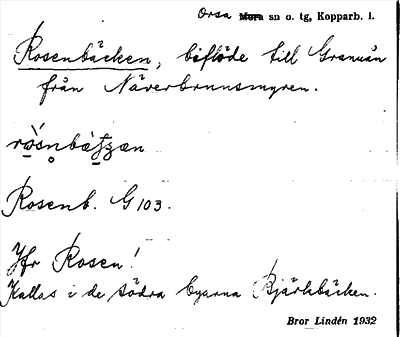 Orsa Mora sn o. tg, Kopparb. l.
Rosenbäcken, biflöde till Granuån
från Näverbrunnsmyren.
Rosenb. G 103.
Jfr Rosen!
Kallas i de södra byarna Björkbäcken.
Bror Lindén 1932